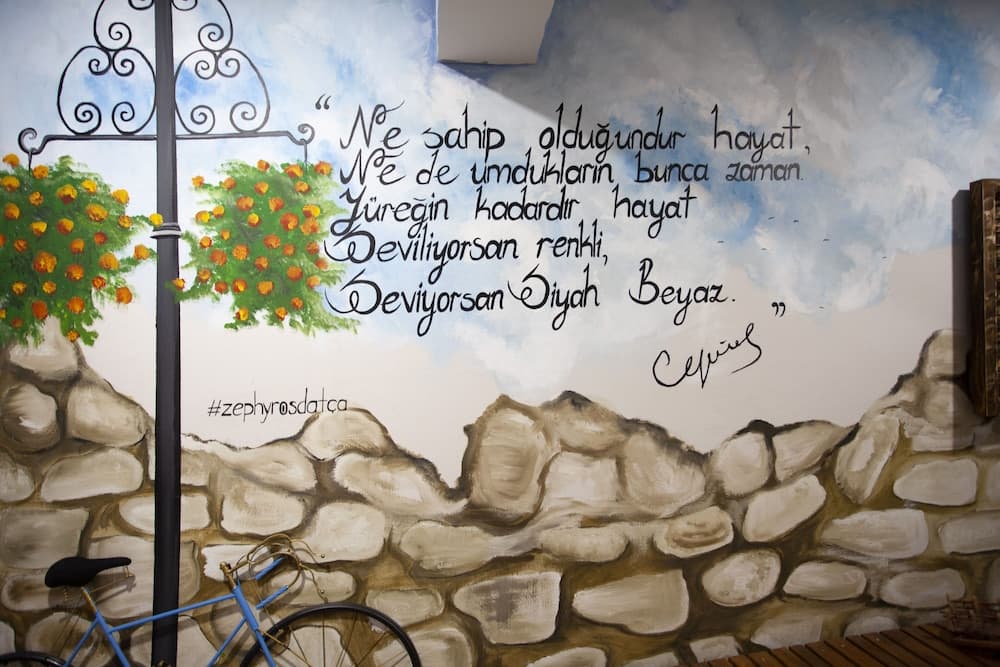 “Ne sahip olduğundur hayat,
Ne de umdukların bunca zaman.
Yüreğin kadardır hayat
Seviliyorsan renkli,
Seviyorsan Siyah Beyaz.”
#zephyrosdatça